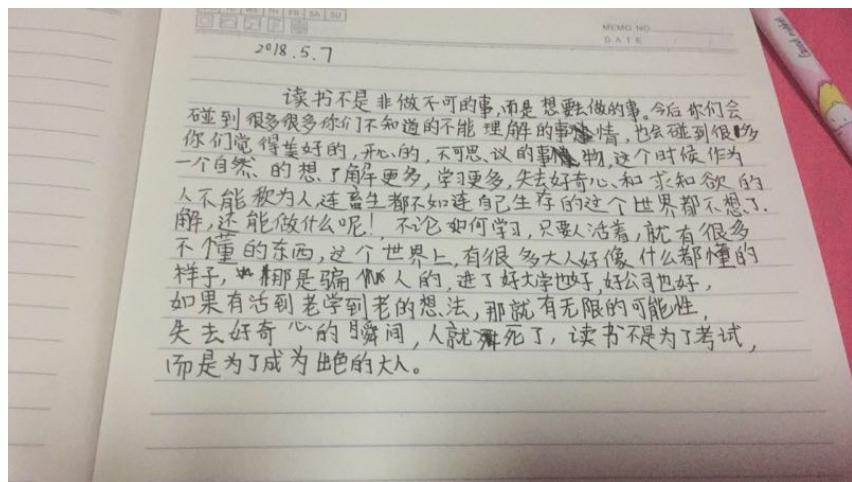 TH FR SA SU
MEMO NO.
DATE
2018.5.7
读书不是非做不可的事,而是想要去做的事。今后你们会
碰到很多很多你们不知道的不能理解的事情,也会碰到很多
你们觉得美好的,开心的,不可思议的事物,这个时候作为
一个自然的想了解更多,学习更多,失去好奇心和求知欲的
人不能称为人,连畜生都不如连自己生存的这个世界都不想了
解,还能做什么呢!不论如何学习,只要人活着,就有很多
不懂的东西,这个世界上,有很多大人好像什么都懂的
样子,那是骗人的,进了好大学也好,好公司也好,
如果有活到老学到老的想法,那就有无限的可能性,
失去好奇心的瞬间,人就死了,读书不是为了考试,
而是为了成为出色的大人。